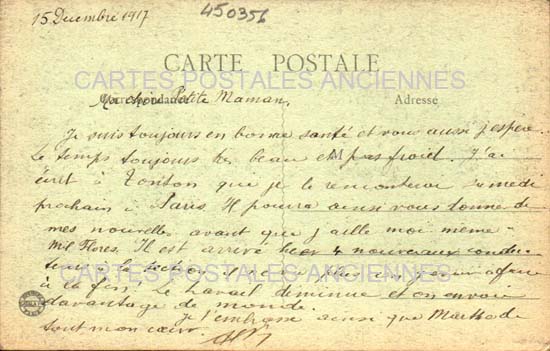 15 Decembre 1917
450356
CARTE POSTALE
CARTES POSTALES ANCIENNES
Correspondance Adresse
Ma chère Petite Maman,
Je suis toujours en bonne santé et vous aussi j'espère
Le temps toujours très beau et pas froid. J'ai
écrit à Tonton que je le remonterai samedi
prochain à Paris Il pourra ainsi vous donner de
mes nouvelles avant que j'aille moi même
Mil Flores. Il est arrivé hier 4 nouveaux
CARTES POSTALES ANCIENNES
à la fois. Le travail diminue et on envoie
davantage de monde.
Je t'embrasse ainsi que de
tout mon cœur.